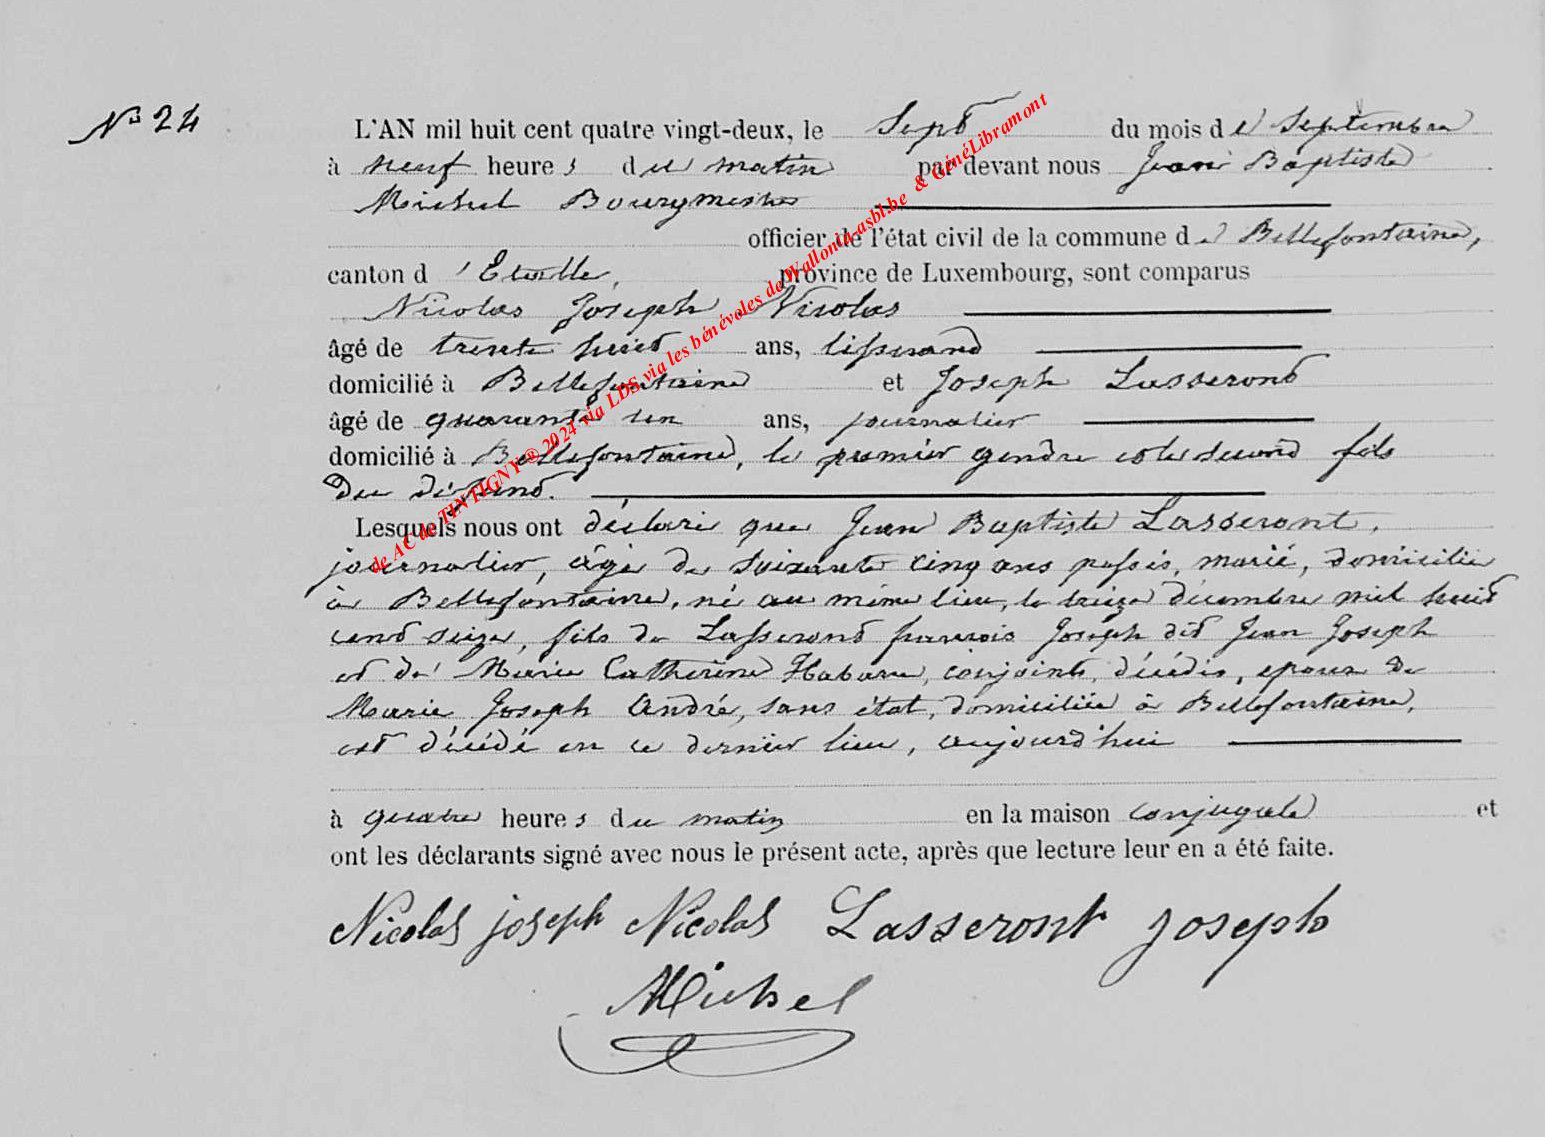 N° 24
L'AN mil huit cent quatre vingt-deux, le Sept du mois de Septembre
à neuf heures du matin par devant nous Jean Baptiste
Michel Bourgmestre
officier de l'état civil de la commune de Bellefontaine,
canton d'Etalle, province de Luxembourg, sont comparus
Nicolas Joseph Nicolas
âgé de trente huit ans, tisserand
domicilié à Bellefontaine et Joseph Lasseront
âgé de quarante un ans, journalier
domicilié à Bellefontaine, le premier gendre et le second fils
du défunt.
Lesquels nous ont déclaré que Jean Baptiste Lasseront,
journalier, âgé de soixante cinq ans passés, marié, domicilié
à Bellefontaine, né au même lieu, le treize décembre mil huit
cent seize, fils de Lasseront françois Joseph dit Jean Joseph
et de Marie Catherine Habaru, conjoints, décédés, epoux de
Marie Joseph André, sans état, domiciliée à Bellefontaine,
est décédé en ce dernier lieu, aujourd'hui
à quatre heures du matin en la maison conjugale et
ont les déclarants signé avec nous le présent acte, après que lecture leur en a été faite.
Nicolas joseph Nicolas Lasseront Joseph
Michel
de AC de TINTIGNY @ 2024 via LDS via les bénévoles de Wallonia-asbl.be & GénéLibramont